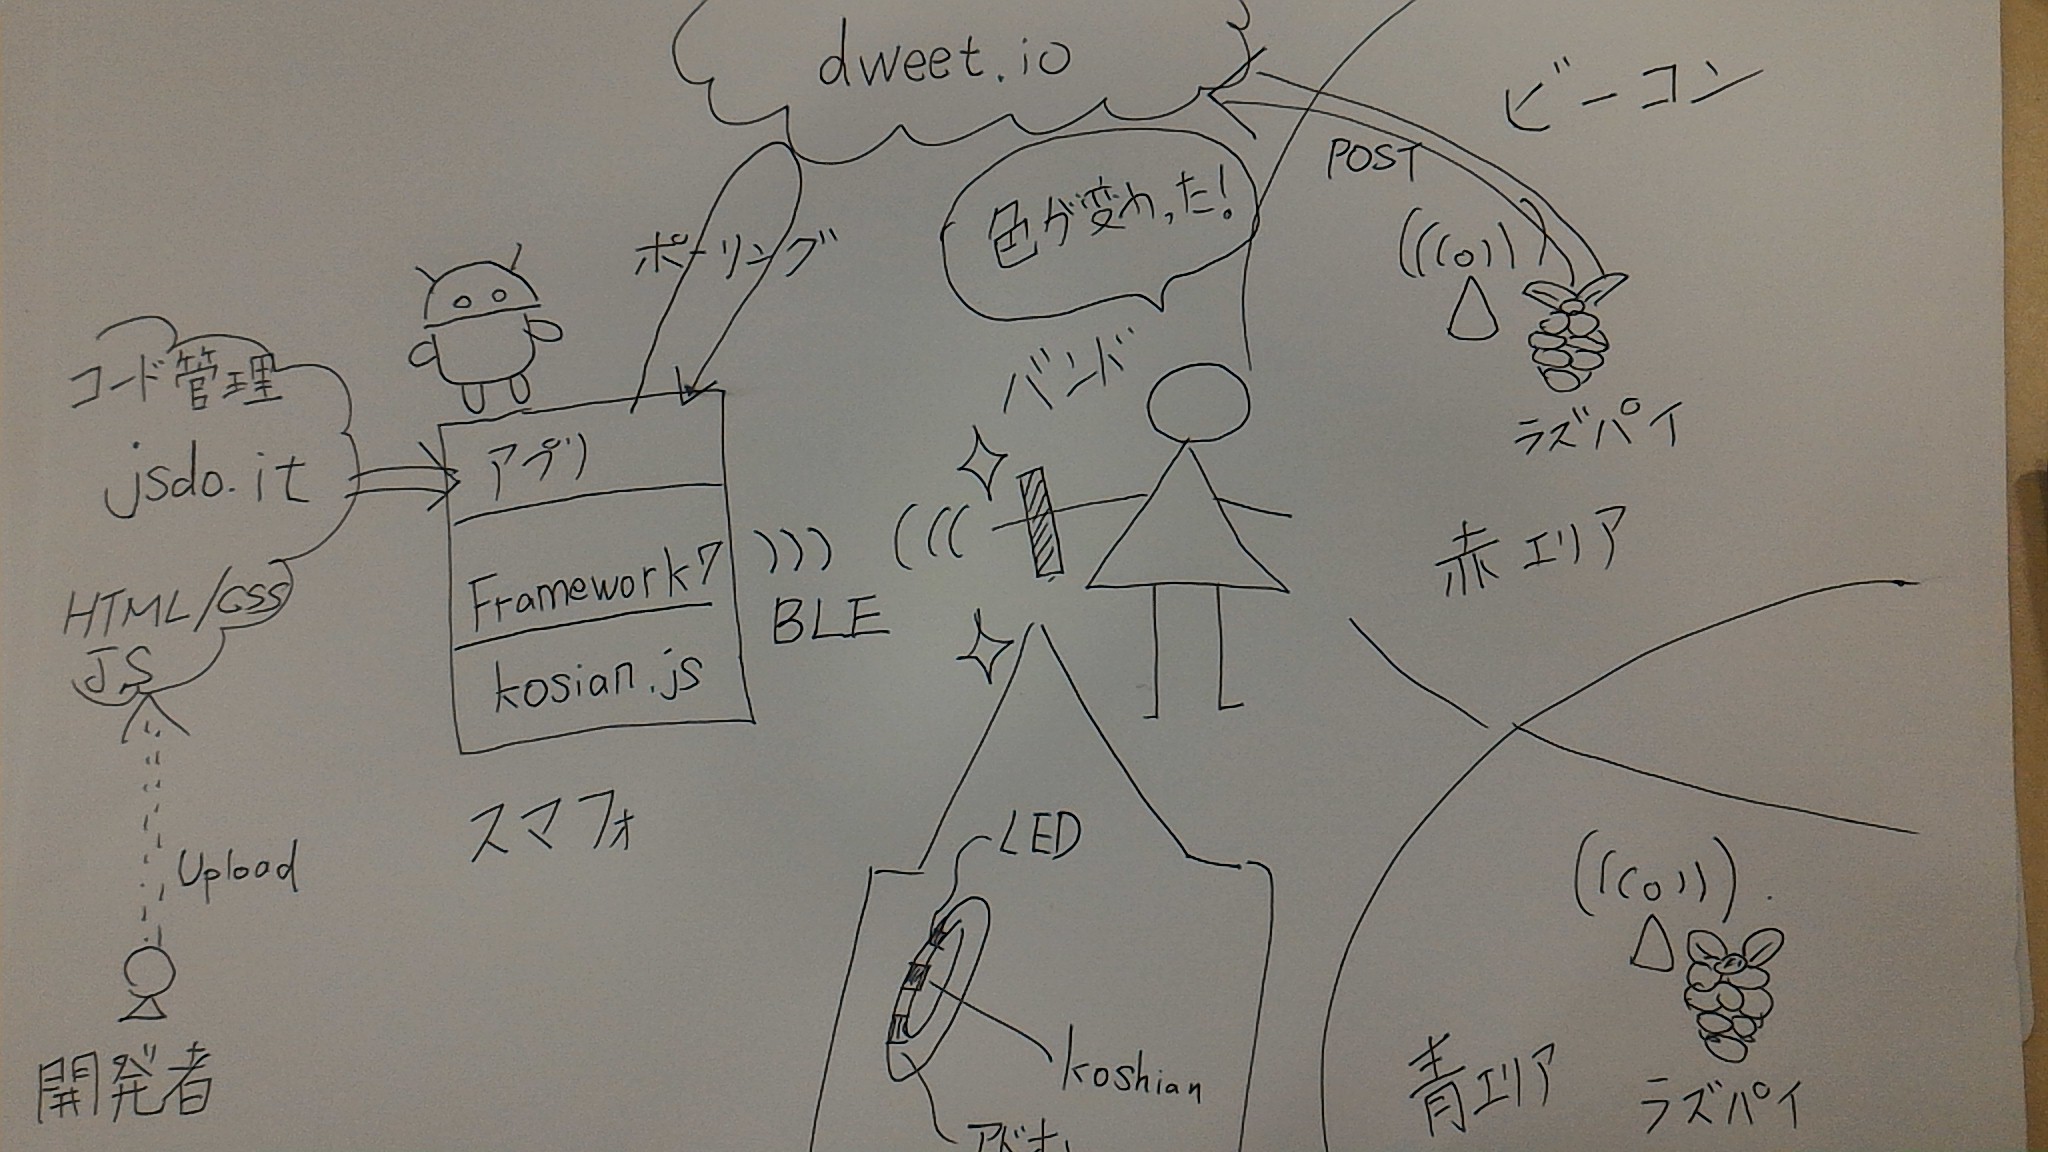 dweet.io
ビーコン
POST
色が変わった!
ポーリング
バンド
ラズパイ
コード管理
jsdo.it
HTML/CSS
JS
アプリ
Framework7
kosian.js
BLE
赤エリア
スマフォ
Upload
LED
koshian
開発者
青エリア
ラズパイ